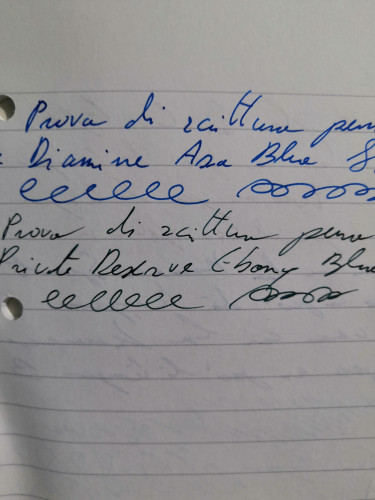 Prova di scrittura pen
Diamine Asa Blue
Prova di scrittura penna
Private Reserve Ebony Blue